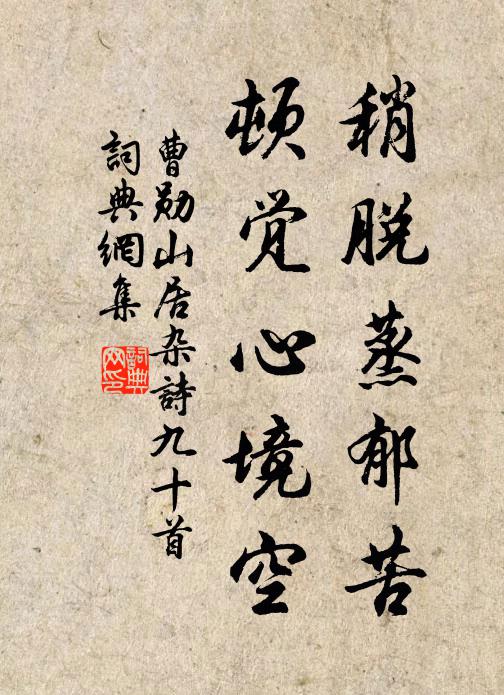 稍脱蒸郁苦
顿觉心境空
曹勋山居杂詩九十首
詞典網集
詞典網印